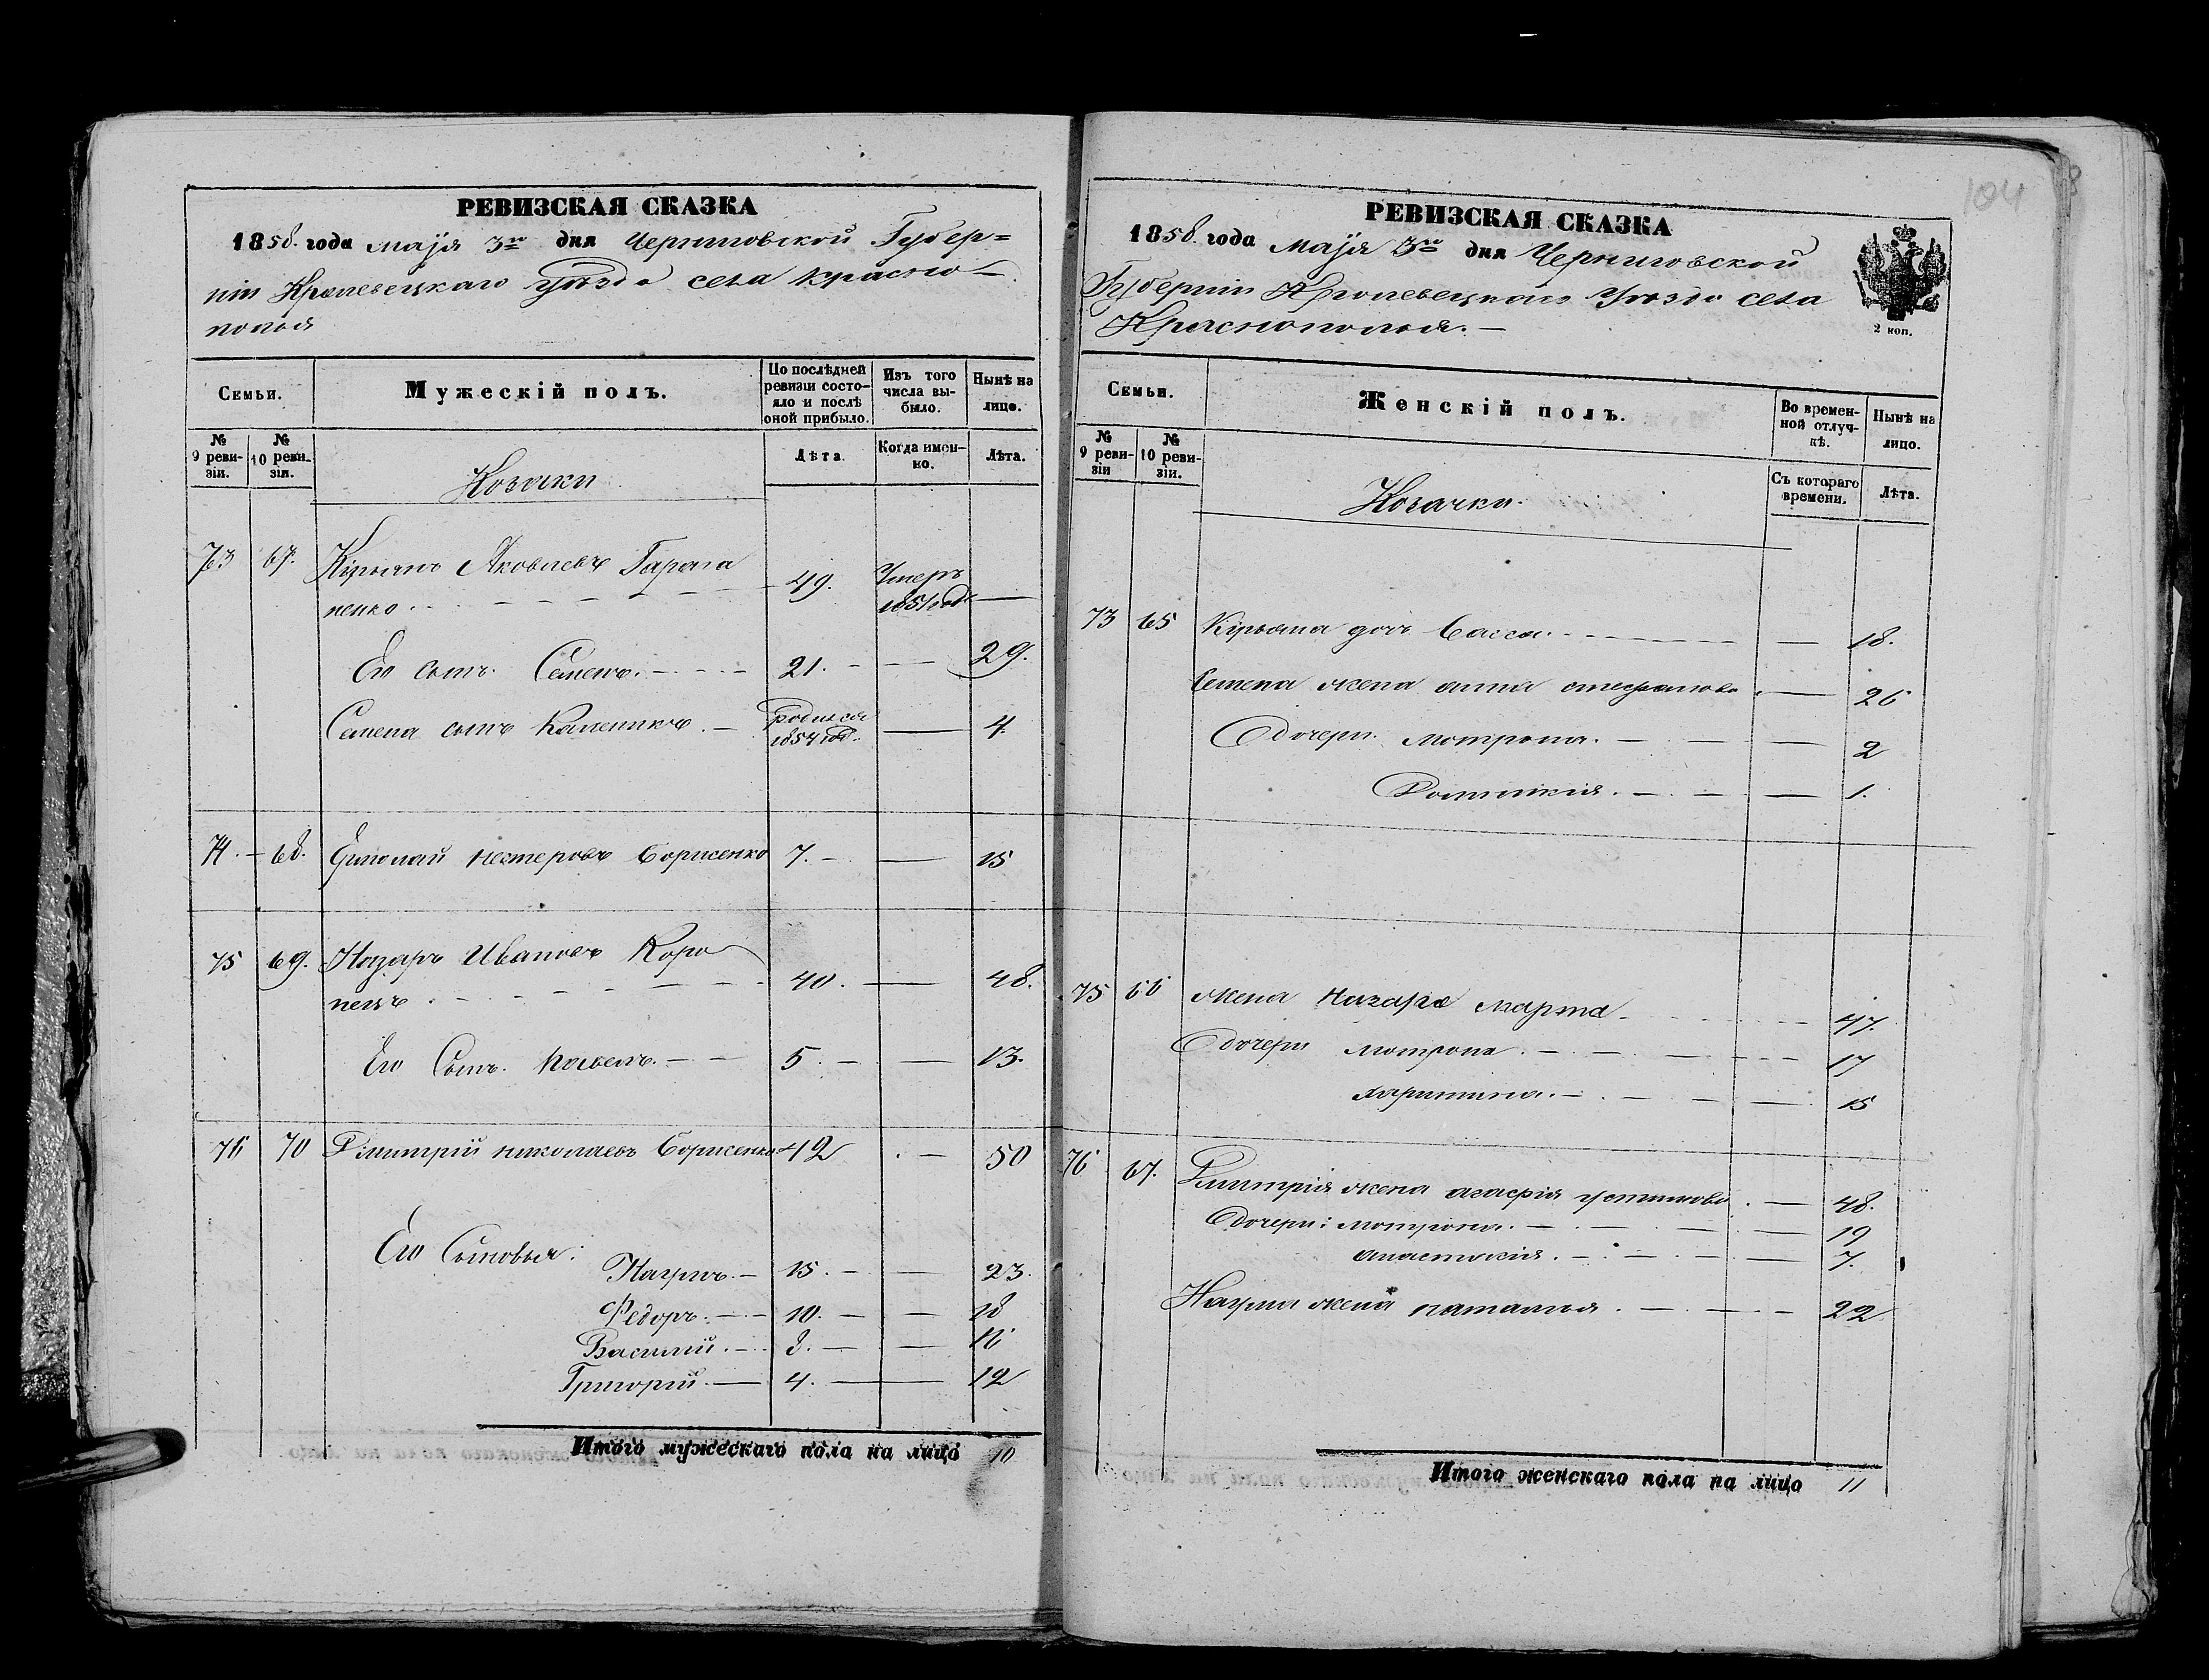 104
РЕВИЗСКАЯ СКАЗКА
1858. года маія 3го дня Черниговской Губер=
ніи Кролевецкаго Уѣзда села Красно-
полья
Семьи.
Мужескій полъ.
По послѣдней ревизіи состо-яло и послѣ оной прибыло.
Изъ того числа вы-было.
Нынѣ на лицо.
№ 9 реви-зіи.
№ 10 реви-зіи.
Козаки
Лѣта.
Когда имен-но.
Лѣта.
73 67. Кірьянъ Яковлевъ Гарата
ненко. 49. Умеръ 1851 год. —
Его сынъ Семенъ. 21. — 29.
Семена сынъ Каленикъ. — родился 1854 год. — 4.
74. 68. Ермолай Нестеровъ Борисенко 7. — 15
75 69. Назаръ Ивановъ Коро
пецъ. 40. — 48.
Его Сынъ Павелъ. 5. — 13.
76 70 Дмитрій Николаевъ Борисенко 42 — 50
Его Сыновья:
Наумъ. 15. — 23.
Федоръ. 10. — 18
Василий. 8. — 16
Григорій. 4. — 12
Итого мужескаго пола на лицо 10
РЕВИЗСКАЯ СКАЗКА
1858. года Маія 3го дня Черниговской
Губерніи Кролевецкаго Уѣзда села
Краснополья. —
2 коп.
Семьи.
Женскій полъ.
Во времен-ной отлуч-кѣ.
Нынѣ на лицо.
№ 9 реви-зіи
№ 10 реви-зіи.
Козачки.
Съ котораго времени.
Лѣта.
73 65 Кірьяна дочь Васса. — 18.
Семена жена Анна Стефанова — 26
Дочери Мотрона. — 2
Домникія. — 1.
75 66 Жена Назара Марта — 47.
Дочери Мотрона. — 17
Харитина. — 15
76 67. Дмитрія жена Агафія Устинова. — 48.
Дочери: Мотрона. — 19
Анастасія. — 7.
Наума жена Наталья. — 22
Итого женскаго пола на лицо 11